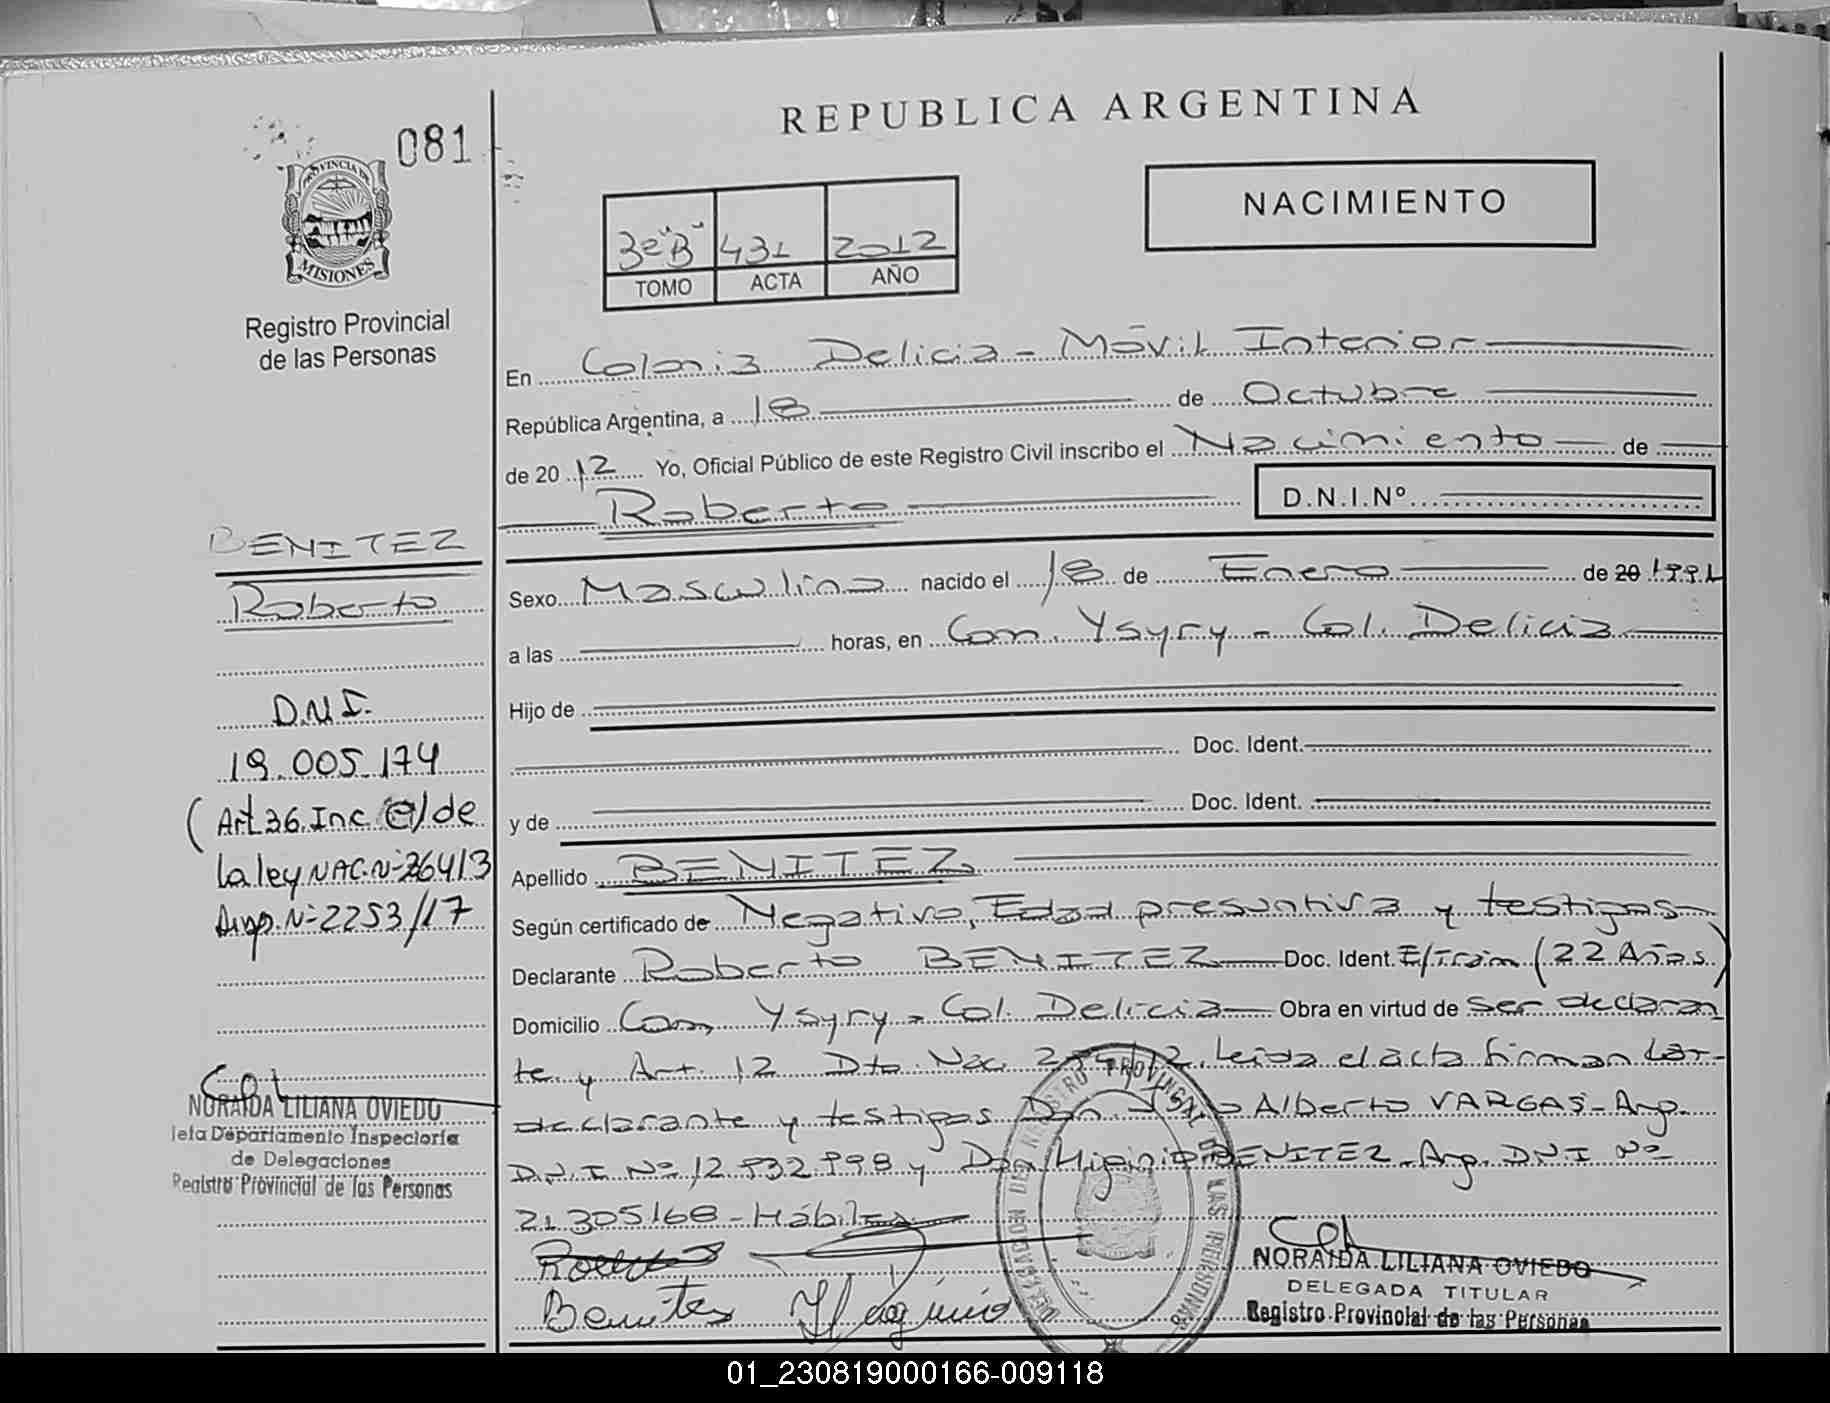 REPUBLICA ARGENTINA
081
PROVINCIA DE
MISIONES
Registro Provincial
de las Personas
3º "B" 431 2012
TOMO ACTA AÑO
NACIMIENTO
En Colonia Delicia - Móvil Interior
República Argentina, a 18 de Octubre
de 2012 Yo, Oficial Público de este Registro Civil inscribo el Nacimiento de
Roberto D.N.I.Nº
Sexo Masculino nacido el 18 de Enero de 20
a las horas, en Com. Ysyry - Col. Delicia
Hijo de
Doc. Ident.
y de Doc. Ident.
Apellido BENITEZ
Según certificado de Negativo, Edad presuntiva y testigos
Declarante Roberto BENITEZ Doc. Ident. E/Trám (22 Años)
Domicilio Com. Ysyry - Col. Delicia Obra en virtud de ser declaran
te y Art. 12 Dto. Nac. Leída el acta firman
declarante y testigos Don Alberto VARGAS - Arg.
D.N.I. Nº 12.932.998 y Don Higinio BENITEZ - Arg. DNI Nº
21.305168 - Hábiles
Benites Higinio
BENITEZ
Roberto
D.N.I.
19.005.174
(Art 36. Inc. @/ de
la ley NAC. Nº 26413
Disp. Nº 2253/17
NORAIDA LILIANA OVIEDO
Jefa Departamento Inspectoría
de Delegaciones
Registro Provincial de las Personas
REGISTRO PROVINCIAL DE LAS PERSONAS
NORAIDA LILIANA OVIEDO
DELEGADA TITULAR
Registro Provincial de las Personas
01_230819000166-009118